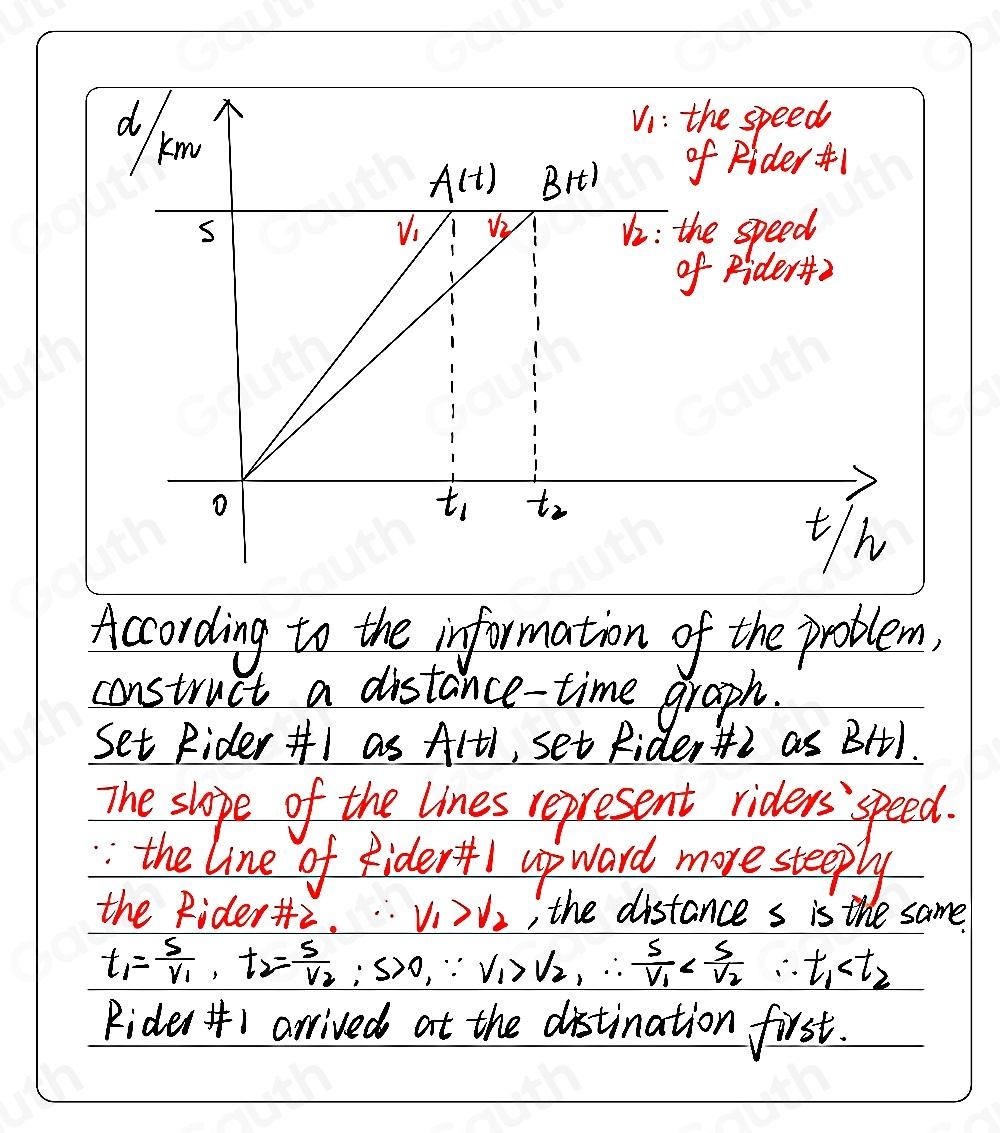 d/km
A(t) B(t)
V1: the speed
of Rider #1
s
V1 V2
V2: the speed
of Rider#2
0 t1 t2
t/h
According to the information of the problem,
construct a distance-time graph.
Set Rider #1 as A(t), set Rider #2 as B(t).
The slope of the lines represent riders' speed.
∵ the line of Rider#1 upward more steeply
the Rider#2. ∴ V1>V2, the distance s is the same.
t1=s/V1, t2=s/V2; s>0, ∵ V1>V2, ∴ s/V1<s/V2 ∴ t1<t2
Rider #1 arrived at the distination first.